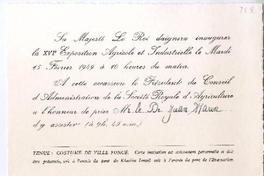 Sa Majesté Le Roi daignera inaugurer
la XVIᵉ Exposition Agricole et Industrielle le Mardi
15 Février 1949 à 10 heures du matin.
A cette occasion le Président du Conseil
d'Administration de la Société Royale d'Agriculture
a l'honneur de prier Mr. le Dr
d'y assister à 9h. 45 m.
TENUE: COSTUME DE VILLE FONCÉ. Cette invitation est strictement personnelle et doit
être présentée, soit à l'entrée du pont de Khédive Ismail soit à l'entrée du pont de